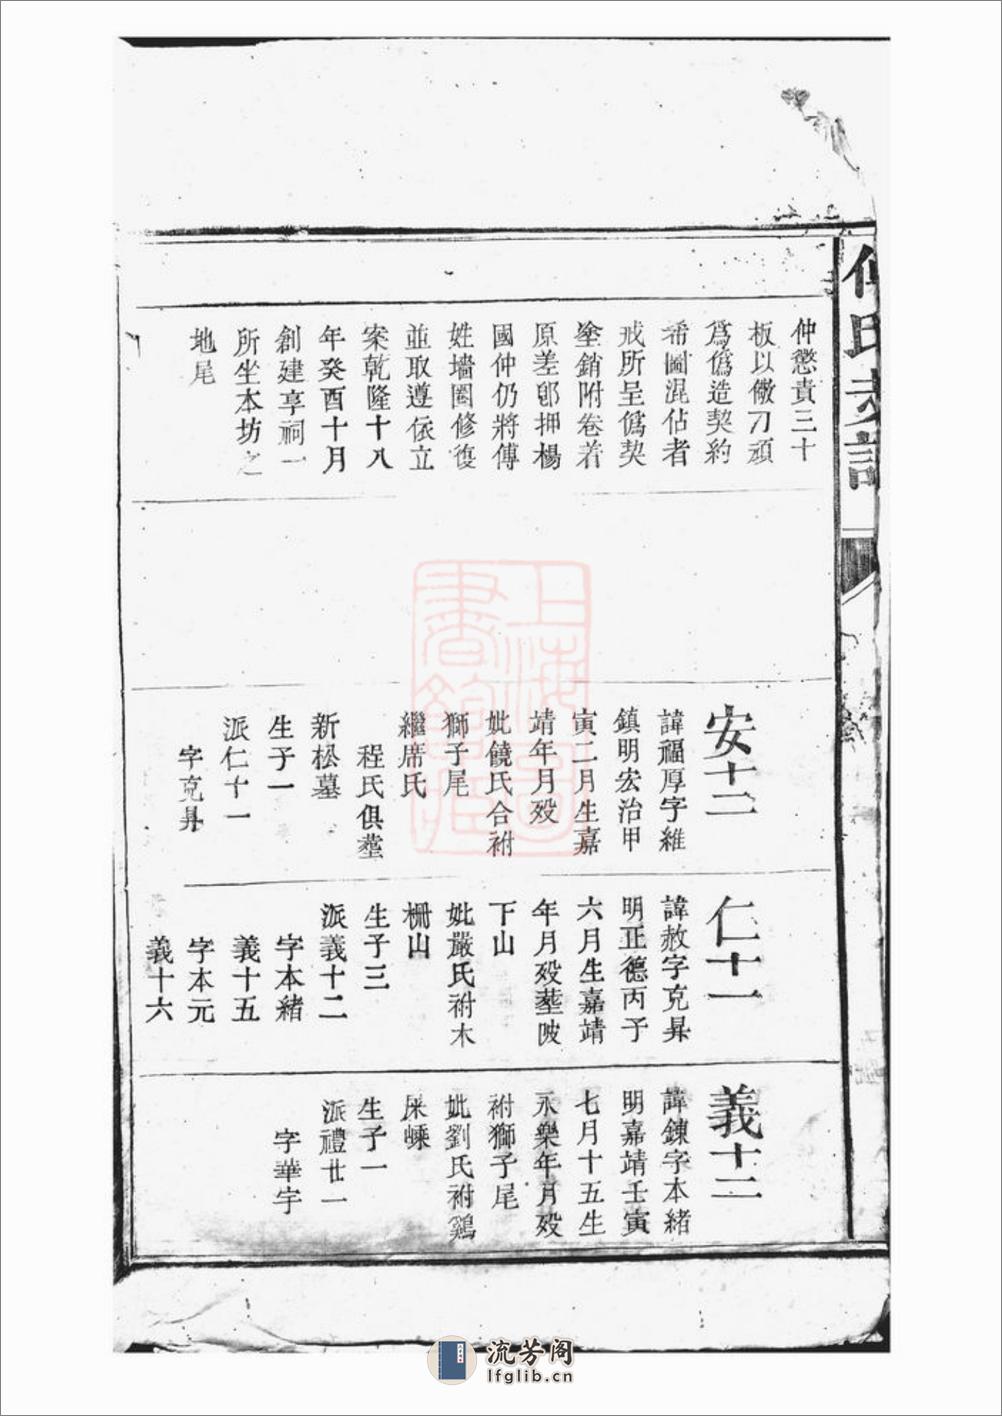 傅氏支譜
仲懲責三十
板以儆刀頑
爲僞造契約
希圖混佔者
戒所呈僞契
塗銷附卷着
原差鄖押楊
國仲仍將傅
姓墻圈修復
並取遵依立
案乾隆十八
年癸酉十月
創建享祠一
所坐本坊之
地尾
安十二
諱福厚字維
鎮明宏治甲
寅二月生嘉
靖年月殁
妣饒氏合祔
獅子尾
繼席氏
程氏俱塟
新松墓
生子一
派仁十一
字克昇
仁十一
諱赦字克昇
明正德丙子
六月生嘉靖
年月殁塟陂
下山
妣嚴氏祔木
栅山
生子三
派義十二
字本緒
義十五
字本元
義十六
義十二
諱鍊字本緒
明嘉靖壬寅
七月十五生
永樂年月殁
祔獅子尾
妣劉氏祔鷄
屎嵊
生子一
派禮廿一
字華宇
上海圖書館藏
流芳阁
lfglib.cn